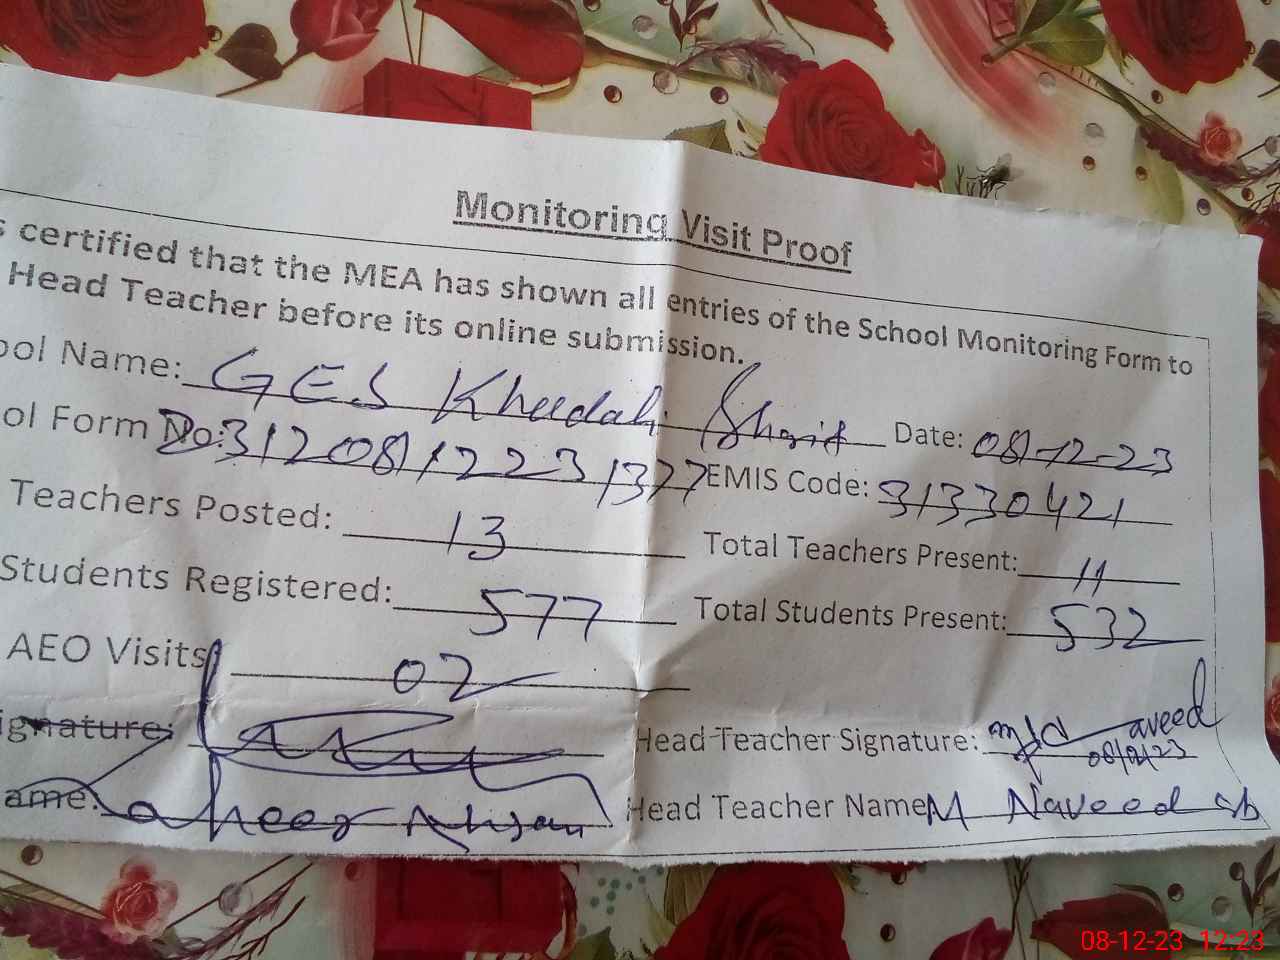 Monitoring Visit Proof
s certified that the MEA has shown all entries of the School Monitoring Form to
Head Teacher before its online submission.
ool Name: GES Kheedali Sharif Date: 08-12-23
ol Form No: 312081223 1377 EMIS Code: 31330421
Teachers Posted: 13 Total Teachers Present: 11
Students Registered: 577 Total Students Present: 532
AEO Visits 02
ignature: Head Teacher Signature: Naveed
08/12/23
ame: Head Teacher Name M Naveed sb
08-12-23 12:23